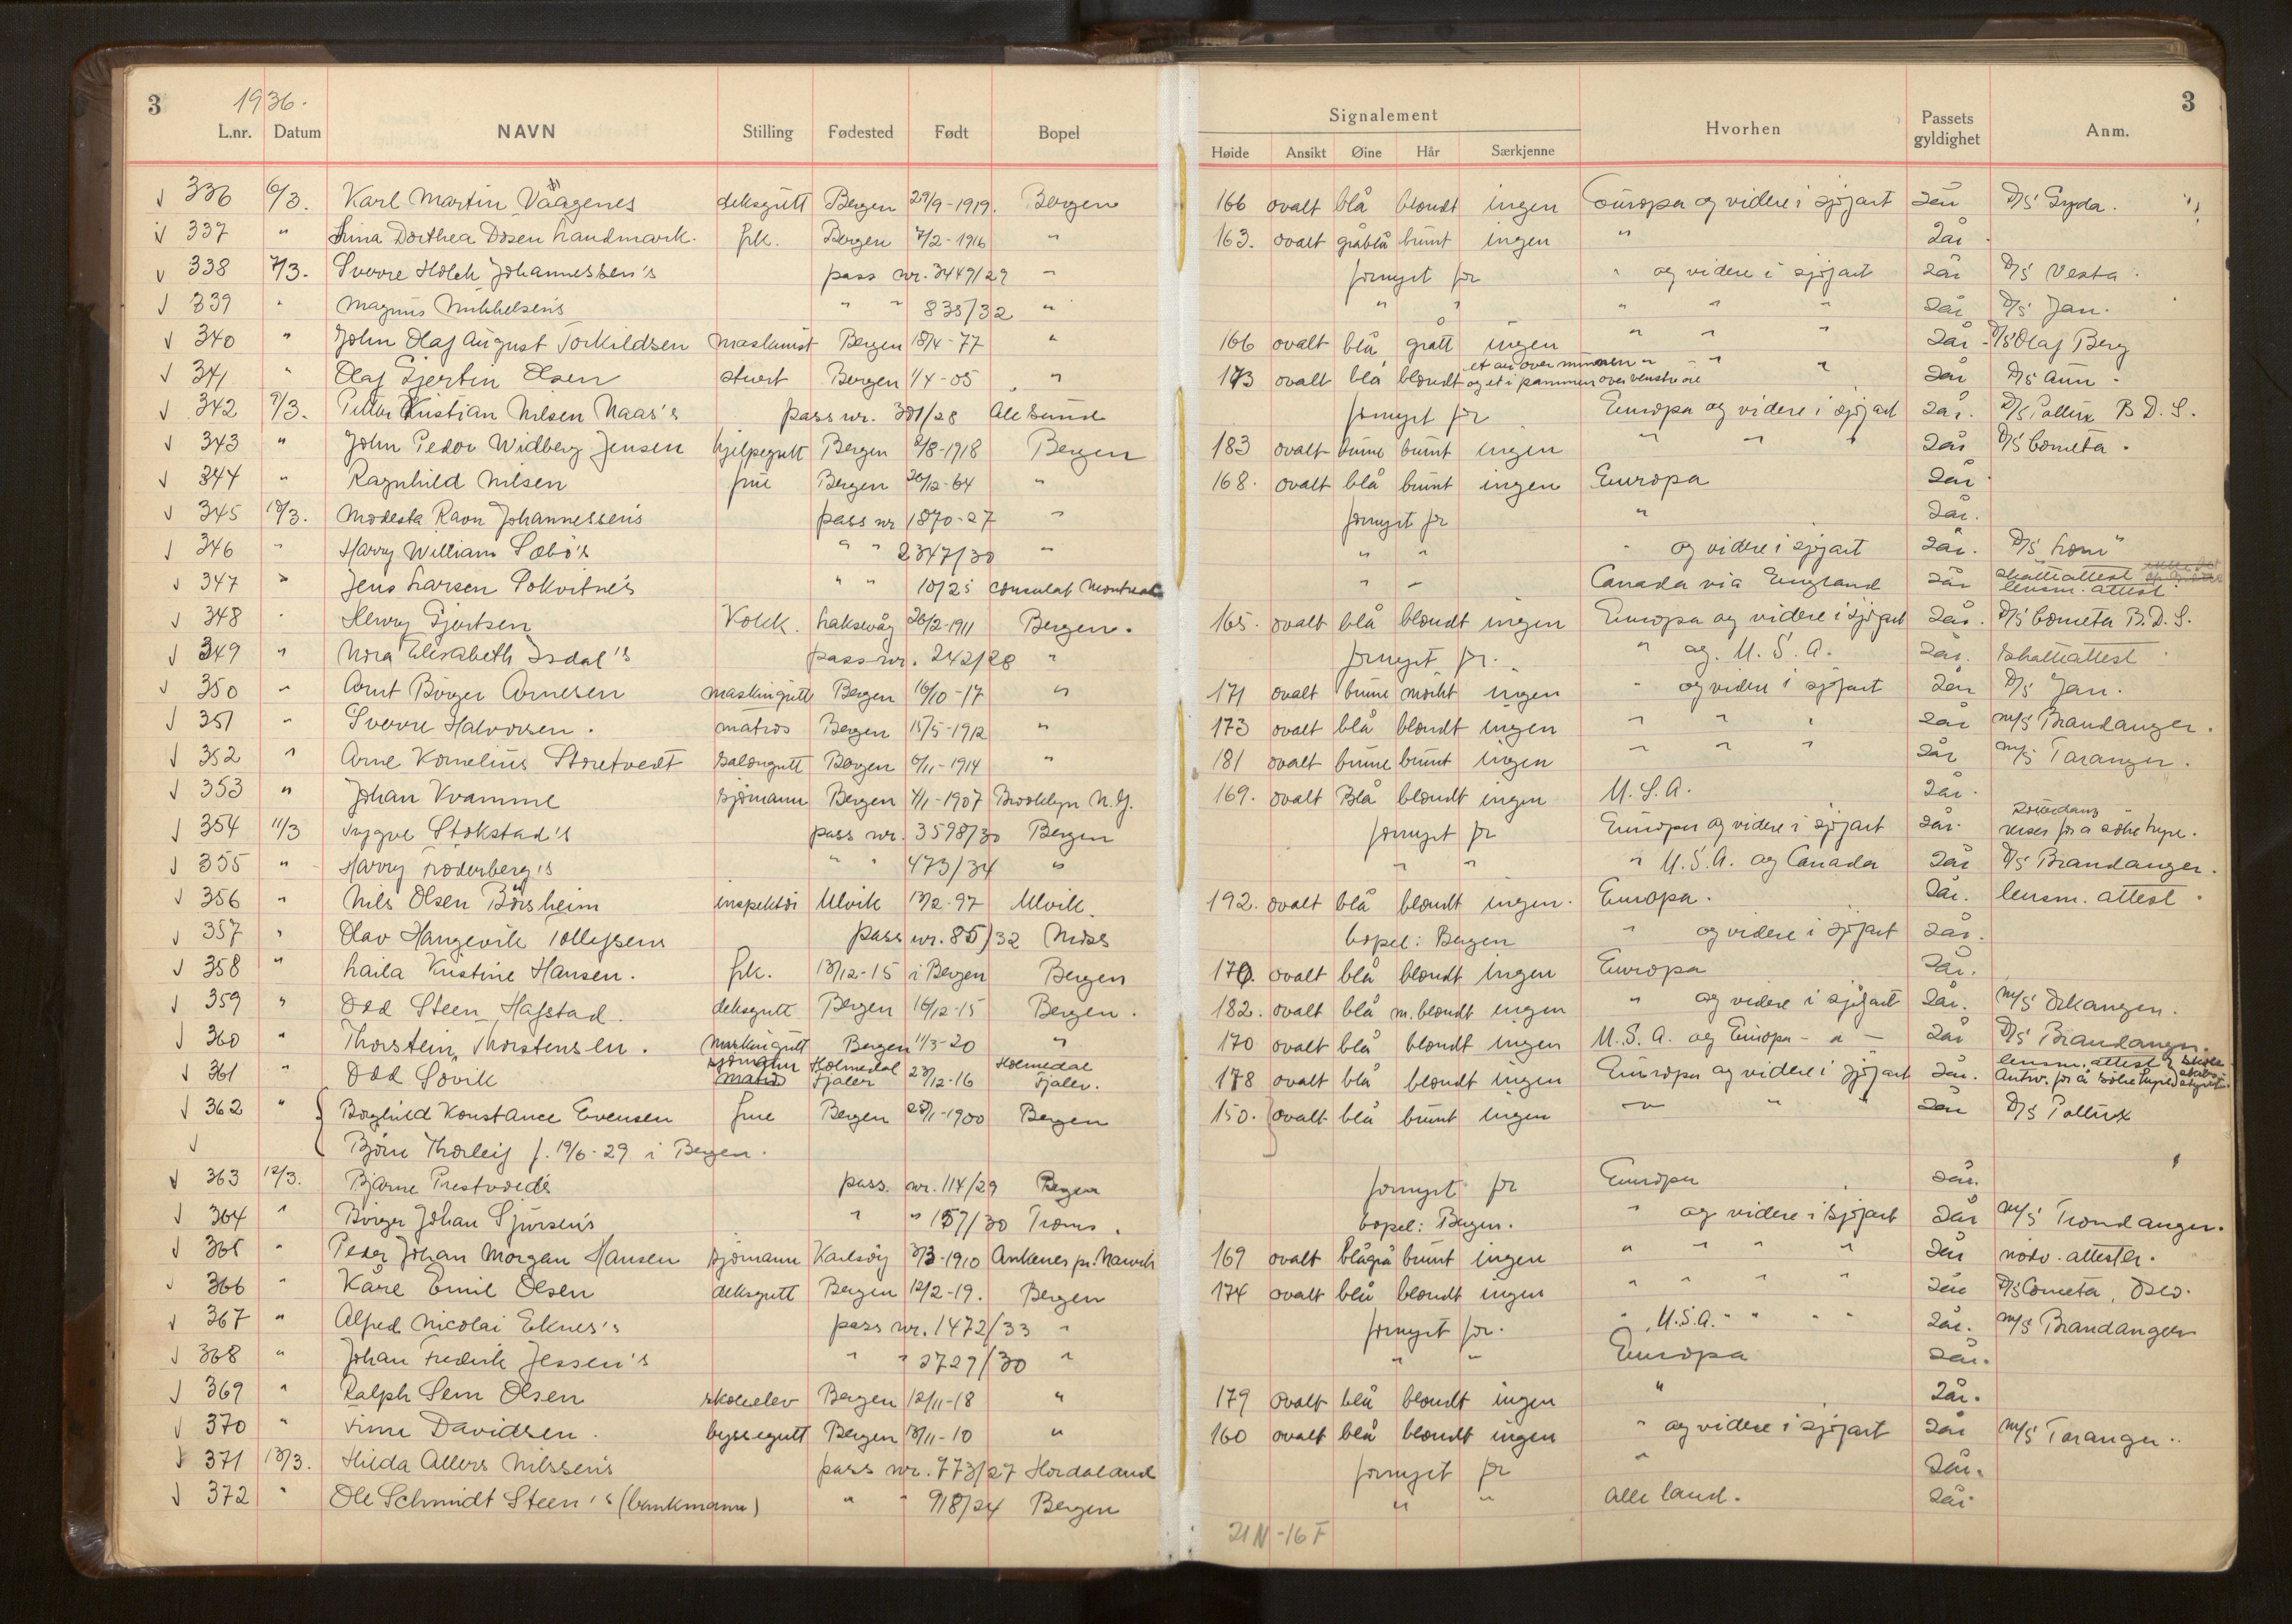 3 1936. 3
L.nr. Datum NAVN Stilling Fødested Født Bopel Signalement Hvorhen Passets gyldighet Anm.
Høide Ansikt Øine Hår Særkjenne
336 6/3. Karl Martin Vaagenes deksgutt Bergen 29/9-1919. Bergen 166 ovalt blå blondt ingen Europa og videre i sjøfart 2 år D/S Gyda.
337 " Dorthea Dosen Landmark. frk. Bergen 7/2-1916 " 163. ovalt gråblå brunt ingen " 2 år
338 7/3. Sverre Holck Johannessen's pass nr. 3449/29 " fornyet for " og videre i sjøfart 2 år D/S Vesta.
339 " Magnus Mikkelsen's " " 835/32 " " " " " " 2 år D/S Jan.
340 " John Olaf August Torkildsen maskinist Bergen 18/4-77 " 166 ovalt blå grått ingen " " " 2 år D/S Olaf Berg
341 " Olaf Gjertin Olsen stuert Bergen 1/4-05 " 173 ovalt blå blondt et arr over munnen og et i pannen over venstre øie " " " 2 år D/S Ann
342 9/3. Petter Kristian Nilsen Naas's pass nr. 381/28 Ålesund fornyet for Europa og videre i sjøfart 2 år. D/S Pollux B.D.S.
343 " John Peder Widberg Jensen hjelpegutt Bergen 2/8-1918 Bergen 183 ovalt brune brunt ingen " " " 2 år D/S Cometa.
344 " Ragnhild Nilsen frue Bergen 20/12-64 " 168. ovalt blå brunt ingen Europa 2 år
345 10/3. Modesta Ravn Johannessen's pass nr 1870-27 " fornyet for " 2 år.
346 " Harry William Sæbö's " " 2347/30 " " " " og videre i sjøfart 2 år. D/S Lom"
347 " Jens Larsen Tokvitne's " " 10/25 consulat Montreal " " Canada via England 2 år skatteattest lensm. attest
348 " Henry Gjertsen Kokk. Laksevåg 26/2-1911 Bergen. 165. ovalt blå blondt ingen Europa og videre i sjøfart 2 år. D/S Cometa B.D.S.
349 " Nora Elisabeth Isdal's pass nr. 242/28 " fornyet for. " og U.S.A. 2 år. skatteattest
350 " Arnt Börger Arnesen maskingutt Bergen 16/10-17 " 171 ovalt brune mörkt ingen " og videre i sjøfart 2 år D/S Jan.
351 " Sverre Halvorsen. matros Bergen 15/5-1912 " 173 ovalt blå blondt ingen " " " 2 år M/S Brandanger.
352 " Arne Kornelius Storetvedt salongutt Bergen 6/11-1914 " 181 ovalt brune brunt ingen " " " 2 år M/S Taranger.
353 " Johan Kvamme sjömann Bergen 4/1-1907 Brooklyn N.Y. 169. ovalt Blå blondt ingen U.S.A. 2 år.
354 11/3 Trygve Stokstad's pass nr. 3598/30 Bergen fornyet for Europa og videre i sjøfart 2 år. reiser for å söke hyre.
355 " Harry Fröderberg's " " 473/34 " " " " U.S.A. og Canada 2 år D/S Brandanger.
356 " Nils Olsen Börsheim inspektör Ulvik 13/2-97 Ulvik. 192. ovalt blå blondt ingen. Europa. 2 år. lensm. attest.
357 " Olav Hangevik Tollefsens pass nr. 85/32 Moss bopel: Bergen " og videre i sjøfart 2 år.
358 " Laila Kristine Hansen. frk. 13/12-15 i Bergen Bergen 170. ovalt blå blondt ingen Europa 2 år.
359 " Odd Steen Hafstad. deksgutt Bergen 16/12-15 Bergen. 182. ovalt blå m.blondt ingen " og videre i sjøfart 2 år. M/S Orkanger.
360 " Thorstein Thorstensen. maskingutt Bergen 11/3-20 " 170 ovalt blå blondt ingen U.S.A. og Europa - " - 2 år D/S Brandanger.
361 " Odd Sövik sjömann matros Holmedal Fjaler 23/12-16 Holmedal Fjaler. 178 ovalt blå blondt ingen Europa og videre i sjøfart 2 år. lensm. attest Antw. for å söke hyre
362 " Borghild Konstance Evensen frue Bergen 28/1-1900 Bergen 150. ovalt blå brunt ingen " " " 2 år D/S Pollux
Björn Thorleif f. 19/6-29 i Bergen.
363 12/3. Bjarne Prestvoed's pass. nr. 114/29 Bergen fornyet for Europa 2 år.
364 " Börger Johan Sjursen's " " 157/30 Troms. bopel: Bergen. " og videre i sjøfart 2 år M/S Trondanger.
365 " Peder Johan Morgan Hansen sjömann Karlsöy 3/3-1910 Ankenes pr. Narvik 169 ovalt blågrå brunt ingen " " " " 2 år nödv. attester.
366 " Kåre Emil Olsen deksgutt Bergen 12/2-19. Bergen 174 ovalt blå blondt ingen " " " " 2 år D/S Cometa, Oslo.
367 " Alfred Nicolai Eknes's pass nr. 1472/33 " fornyet for. " U.S.A. " " " " 2 år. M/S Brandanger
368 " Johan Fredrik Jessen's " " 2727/30 " " " Europa 2 år.
369 " Ralph Sem Olsen skoleelev Bergen 12/11-18 " 179 ovalt blå blondt ingen " 2 år.
370 " Finn Davidsen. byssegutt Bergen 13/11-10 " 160 ovalt blå blondt ingen " og videre i sjøfart 2 år M/S Taranger.
371 13/3. Hilda Allers Nilssen's pass nr. 773/27 Hordaland fornyet for " 2 år.
372 " Ole Schmidt Steen's (bankmann) " " 918/24 Bergen " " alle land. 2 år
21 N - 16 F